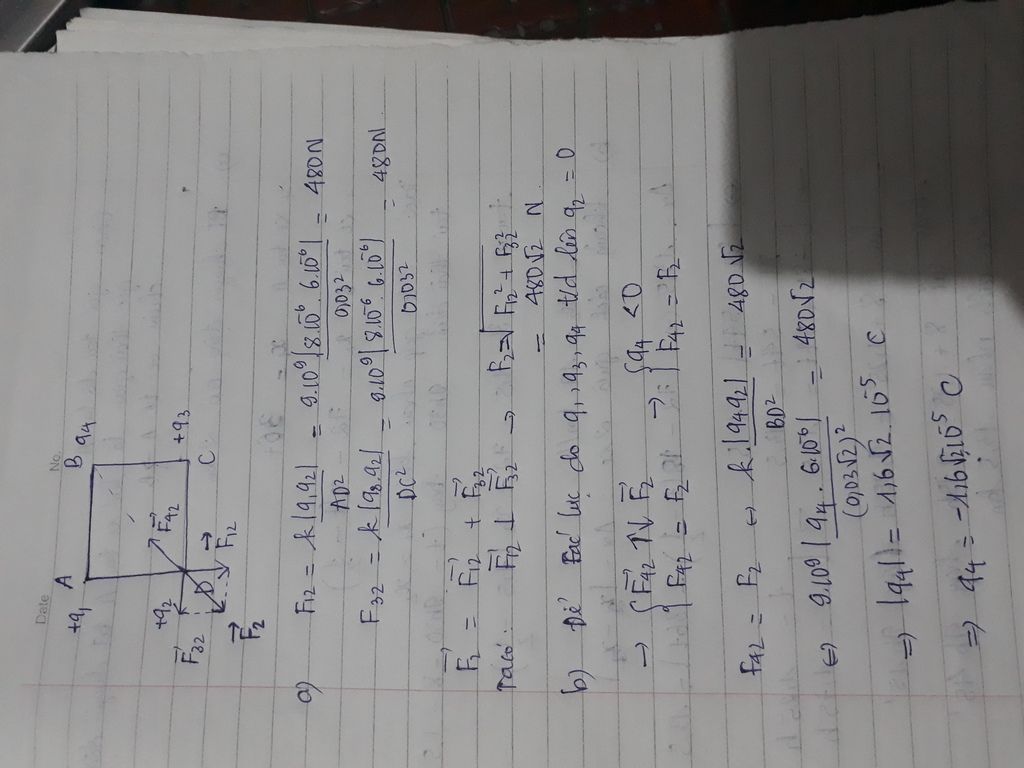 Date No.
A B q4
+q1
F⃗42
+q2 +q3
F⃗32 D C
F⃗12
F⃗2
a) F12 = k|q1q2| / AD² = 9.10⁹|8.10⁻⁶. 6.10⁻⁶| / 0,03² = 480N
F32 = k|q3.q2| / DC² = 9.10⁹|8.10⁻⁶. 6.10⁻⁶| / 0,03² = 480N
F⃗2 = F⃗12 + F⃗32
Ta có: F⃗12 ⊥ F⃗32 → F2 = √(F12² + F32²)
= 480√2 N
b) Để các lực do q1, q3, q4 t/d lên q2 = 0
→ { F⃗42 ↑↓ F⃗2 → { q4 < 0
{ F42 = F2 { F42 = F2
F42 = F2 ↔ k.|q4q2| / BD² = 480√2
↔ 9.10⁹ |q4. 6.10⁻⁶| / (0,03√2)² = 480√2
⇒ |q4| = 1,6√2. 10⁻⁵ C
⇒ q4 = -1,6√2.10⁻⁵ C